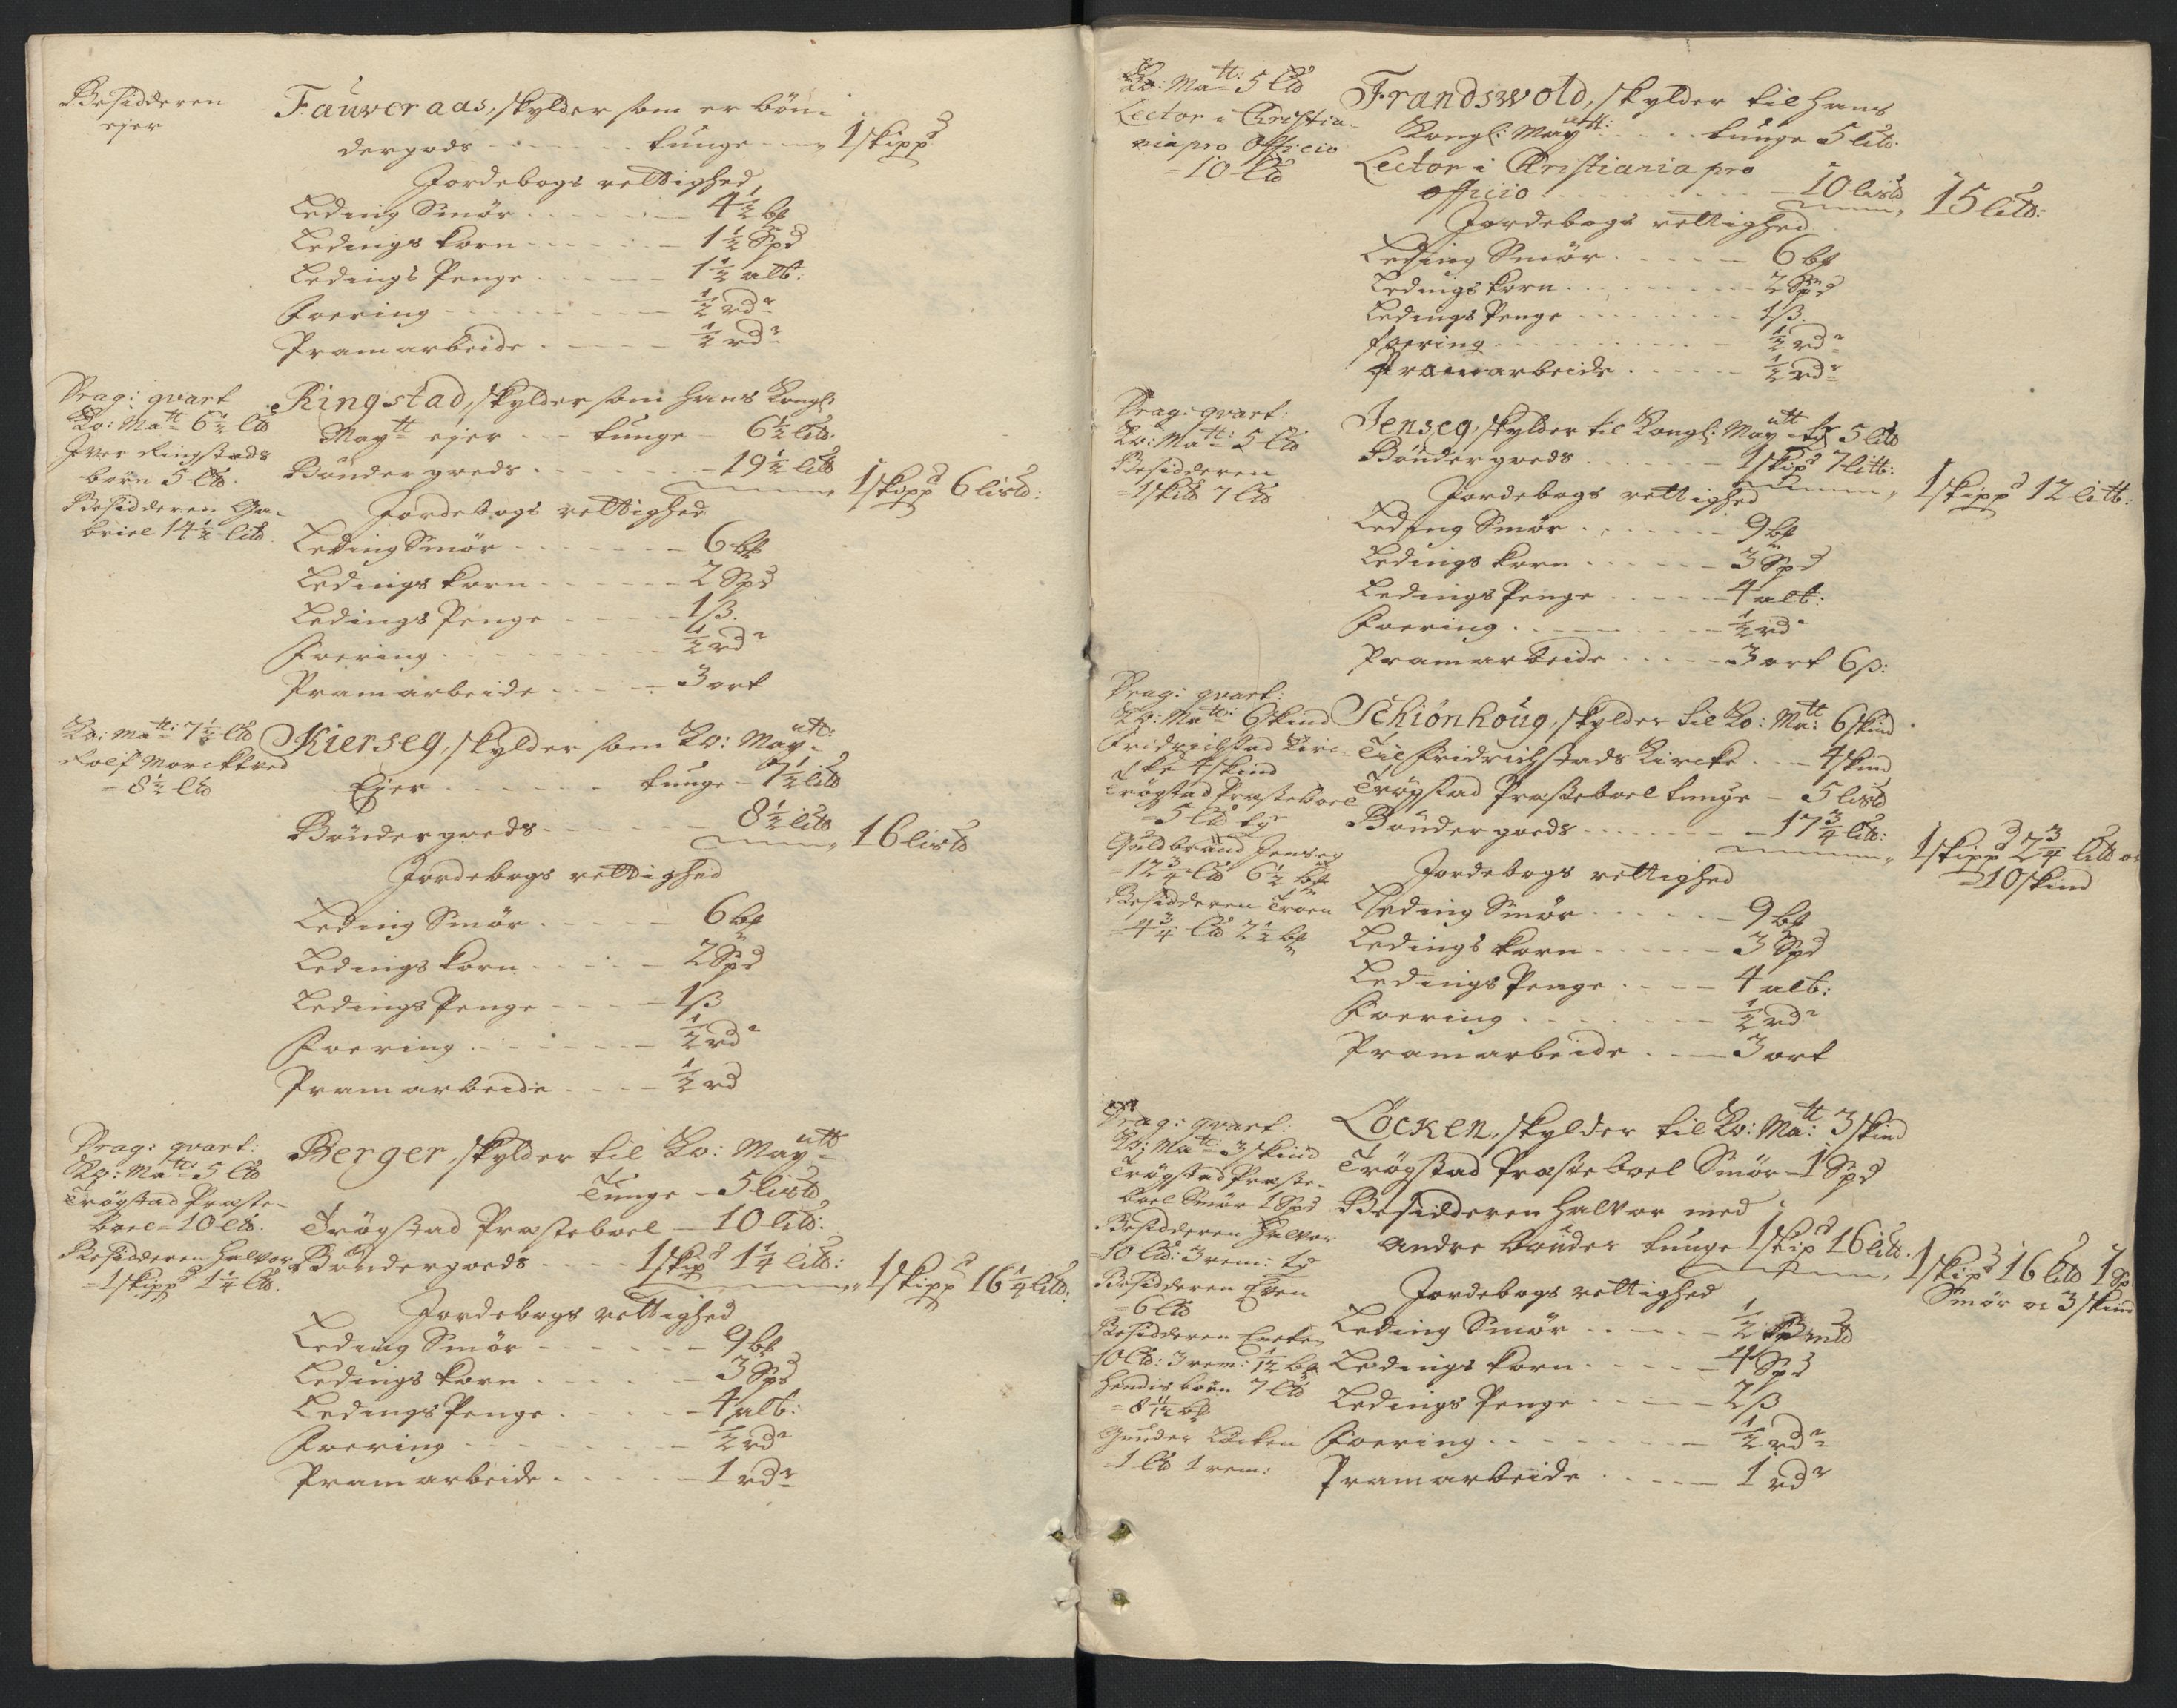 Besidderen
ejer
Fauveraas, skylder som er bön¡
dergods - - - - - tunge - - - 1 skippd
Jordebogs rettighed
Leding Smör - - - - - 4½ bp
Ledings korn - - - - - 1½ Spd
Ledings Penge - - - - - 1½ alb:
Foering - - - - - ½ rdr
Pramarbeide - - - - - ½ rdr
Drag: qvart
Ko: Matt 6½ lld
Iver Ringstads
børn 5 lld.
Besidderen Ga-
briel 14½ litd
Ringstad, skylder som hans Kongl:
Maytt ejer - - - tunge - 6½ litd.
Bönder goeds - - - - - 19½ litd
1 skippd 6 listd:
Jordebogs rettighed
Leding Smör - - - - - 6 bp
Ledings korn - - - - - 2 Spd
Ledings Penge - - - - - 1 ß.
Foering - - - - - ½ rdr
Pramarbeide - - - - - 3 ort
Ko: Matt: 7½ lld
Rolf Morckved
= 8½ lld
Kierseg, skylder som Ko: Maytt:
Ejer - - - - - tunge - 7½ litd
Bönder goeds - - - - - 8½ litd
16 listd
Jordebogs rettighed
Leding Smör - - - - - 6 bp
Ledings korn - - - - - 2 Spd
Ledings Penge - - - - - 1 ß
Foering - - - - - ½ rdr
Pramarbeide - - - - - ½ rd
Drag: qvart:
Ko: Matt: 5 lld
Trögstad Præste-
boel = 10 lld.
Besidderen Halvor
= 1 skippd 1¼ lld.
Berger, skylder til Ko: Maytt
Tunge - 5 listd
Trögstad Præsteboel - 10 litd:
Bönder goeds - - - - 1 skipd 1¼ litd:
1 skippd 16¼ litd:
Jordebogs rettighed
Leding Smör - - - - - 9 bp
Ledings korn - - - - - 3 Spd
Ledings Penge - - - - - 4 alb:
Foering - - - - - ½ rdr
Pramarbeide - - - - - 1 rdr
Ko: Matt: 5 lld
Lector i Christia-
nia pro Officio
= 10 lld
Frandswold, skylder til hans
Kongl: Maytt: - - - - tunge 5 litd.
Lector i Christiania pro
officio - - - - - 10 listd
15 litd:
Jordebogs rettighed
Leding Smör - - - - - 6 bp
Ledings korn - - - - - 2 Spd
Ledings Penge - - - - - 1 ß.
Foering - - - - - ½ rdr
Pramarbeide - - - - - ½ rdr
Drag: qvart:
Ko: Matt: 5 lld
Besidderen
= 1 skld 7 lld
Jenseg, skylder til Kongl: Maytt 5 litd
Bönder goeds - - - - - 1 skipd 7 litt:
1 skippd 12 litt:
Jordebogs rettighed
Leding Smör - - - - - 9 bp
Ledings korn - - - - - 3 Spd
Ledings Penge - - - - - 4 alb:
Foering - - - - - ½ rdr
Pramarbeide - - - - - 3 ort 6 ß:
Drag: qvart:
Ko: Matt: 6 skind
Fridrichstad Kirc-
ke 4 skind
Trögstad Præsteboel
= 5 lld
Guldbrand Jenseg
= 12¾ lld 6½ bp
Besidderen Troen
= 4¾ lld 2½ bp
Schiönhoug, skylder til Ko: Matt: 6 skind
Til Fridrichstads Kircke - - - 4 skind
Trögstad Præsteboel tunge - 5 listd
Bönder goeds - - - - - 17¾ litd:
1 skippd 2¾ litd oc
= 10 skind
Jordebogs rettighed
Leding Smör - - - - - 9 bp
Ledings korn - - - - - 3 Spd
Ledings Penge - - - - 4 alb:
Foering - - - - - ½ rdr
Pramarbeide - - - - 3 ort
Drag: qvart:
Ko: Matt: 3 skind
Trögstad Præste-
boel Smör 1 Spd
Besidderen Halvor
= 10 lld: 3 rem:
Besidderen Even
= 6 lld
Besidderen
10 lld: 3 rem: 1/12 bp
hendis börn 7 lld
= 8 11/12 bp
Gunder Löcken
1 lld 1 rem:
Löcken, skylder til Ko: Ma:tt 3 skind
Trögstad Præsteboel Smör - 1 Spd
Besidderen Halvor med
andre bönder tunge 1 skipd 16 litd.
1 skipd 16 litd 1 Sp
Smör oc 3 skind
Jordebogs rettighed
Leding Smör - - - - - ½ Bmld
Ledings korn - - - - - 4 Spd
Ledings Penge - - - - - 2 ß
Foering - - - - - ½ rdr
Pramarbeide - - - - - 1 rdr